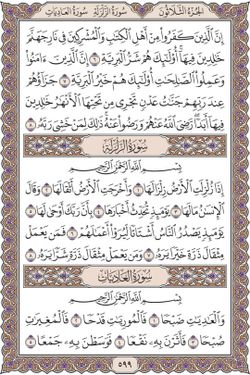 الجزء الثلاثون سورة الزلزلة سورة العاديات
إِنَّ الَّذِينَ كَفَرُوا مِنْ أَهْلِ الْكِتَابِ وَالْمُشْرِكِينَ فِي نَارِ جَهَنَّمَ
خَالِدِينَ فِيهَا أُولَٰئِكَ هُمْ شَرُّ الْبَرِيَّةِ ٦ إِنَّ الَّذِينَ ءَامَنُوا
وَعَمِلُوا الصَّالِحَاتِ أُولَٰئِكَ هُمْ خَيْرُ الْبَرِيَّةِ ٧ جَزَاؤُهُمْ
عِندَ رَبِّهِمْ جَنَّاتُ عَدْنٍ تَجْرِي مِن تَحْتِهَا الْأَنْهَارُ خَالِدِينَ
فِيهَا أَبَدًا رَّضِيَ اللَّهُ عَنْهُمْ وَرَضُوا عَنْهُ ذَٰلِكَ لِمَنْ خَشِيَ رَبَّهُ ٨
سورة الزلزلة
بِسْمِ اللَّهِ الرَّحْمَٰنِ الرَّحِيمِ
إِذَا زُلْزِلَتِ الْأَرْضُ زِلْزَالَهَا ١ وَأَخْرَجَتِ الْأَرْضُ أَثْقَالَهَا ٢ وَقَالَ
الْإِنسَانُ مَا لَهَا ٣ يَوْمَئِذٍ تُحَدِّثُ أَخْبَارَهَا ٤ بِأَنَّ رَبَّكَ أَوْحَىٰ لَهَا ٥
يَوْمَئِذٍ يَصْدُرُ النَّاسُ أَشْتَاتًا لِّيُرَوْا أَعْمَالَهُمْ ٦ فَمَن يَعْمَلْ
مِثْقَالَ ذَرَّةٍ خَيْرًا يَرَهُ ٧ وَمَن يَعْمَلْ مِثْقَالَ ذَرَّةٍ شَرًّا يَرَهُ ٨
سورة العاديات
بِسْمِ اللَّهِ الرَّحْمَٰنِ الرَّحِيمِ
وَالْعَادِيَاتِ ضَبْحًا ١ فَالْمُورِيَاتِ قَدْحًا ٢ فَالْمُغِيرَاتِ
صُبْحًا ٣ فَأَثَرْنَ بِهِ نَقْعًا ٤ فَوَسَطْنَ بِهِ جَمْعًا ٥
٥٩٩